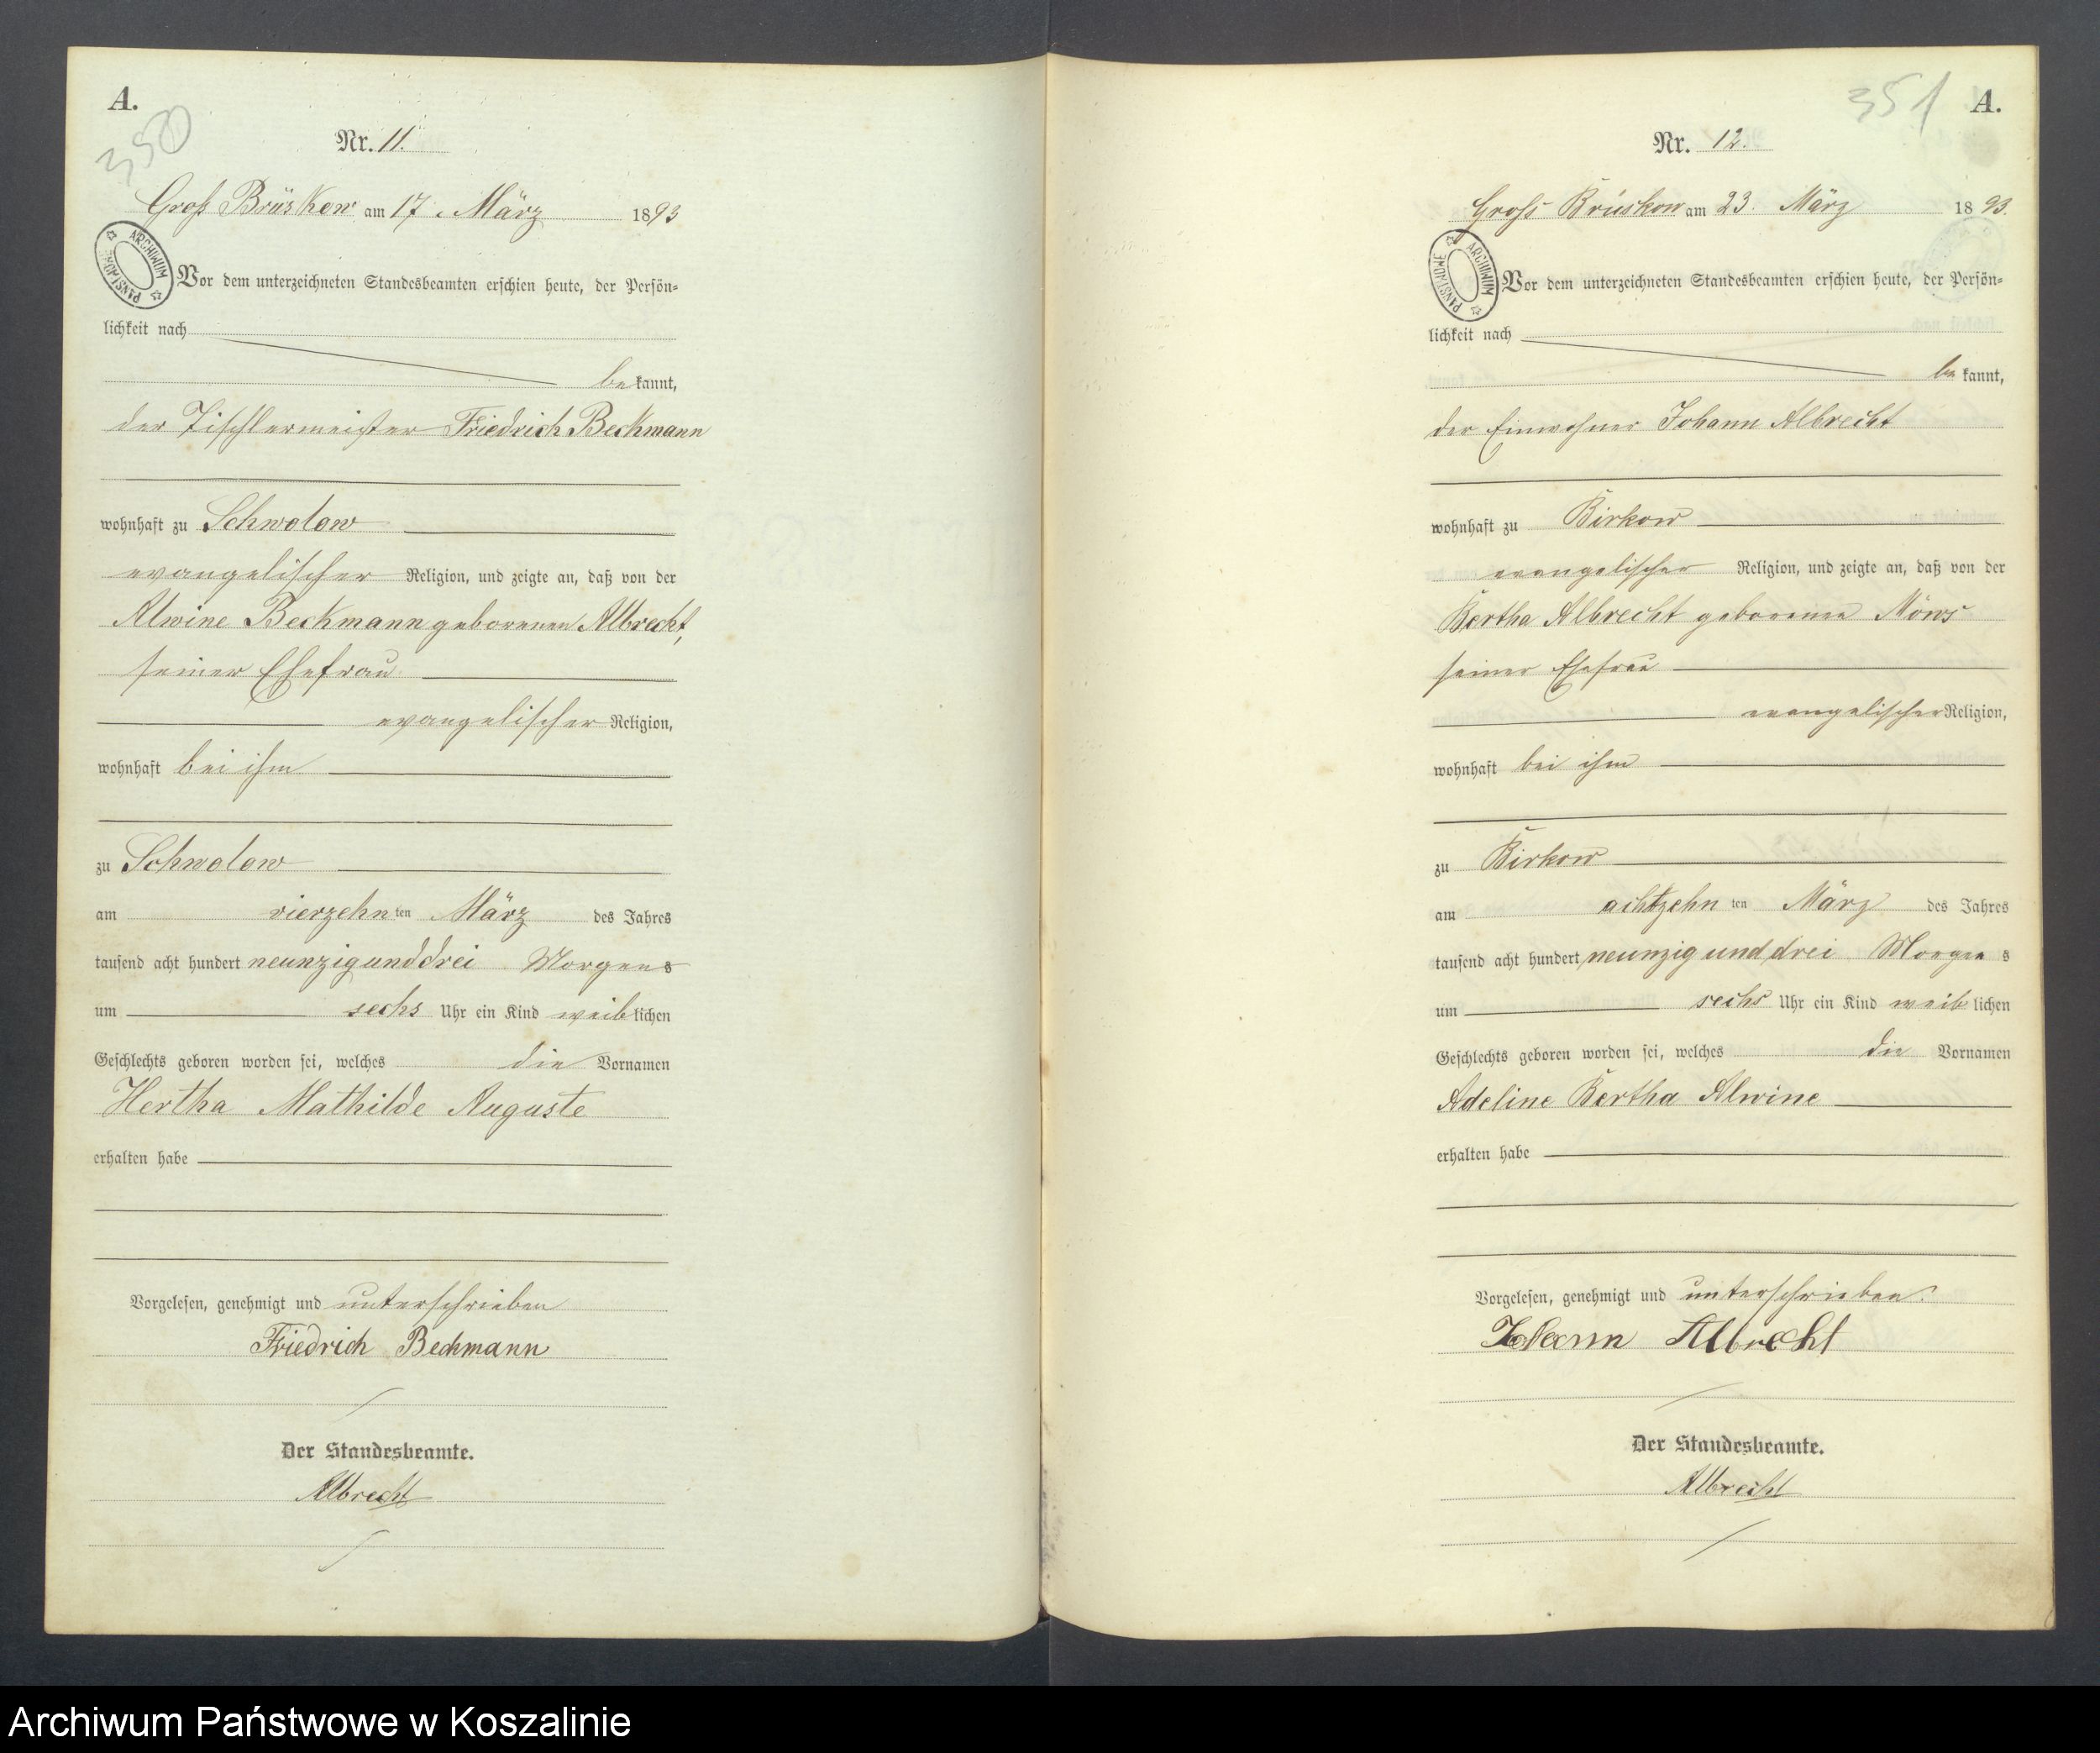 A.
350
Nr. 11.
Groß Brüskow am 17. März 1893
ARCHIWUM PAŃSTWOWE
Vor dem unterzeichneten Standesbeamten erschien heute, der Persön-
lichkeit nach
bekannt,
der Tischlermeister Friedrich Beckmann
wohnhaft zu Schwolow
evangelischer Religion, und zeigte an, daß von der
Alwine Beckmann geborenen Albrecht,
seiner Ehefrau
evangelischer Religion,
wohnhaft bei ihm
zu Schwolow
am vierzehnten März des Jahres
tausend acht hundert neunzigunddrei Morgens
um sechs Uhr ein Kind weiblichen
Geschlechts geboren worden sei, welches die Vornamen
Hertha Mathilde Auguste
erhalten habe
Vorgelesen, genehmigt und unterschrieben
Friedrich Beckmann
Der Standesbeamte.
Albrecht
351
A.
Nr. 12.
Groß Brüskow am 23. März 1893.
ARCHIWUM PAŃSTWOWE
Vor dem unterzeichneten Standesbeamten erschien heute, der Persön-
lichkeit nach
bekannt,
der Einwohner Johann Albrecht
wohnhaft zu Birkow
evangelischer Religion, und zeigte an, daß von der
Bertha Albrecht geborene Möws
seiner Ehefrau
evangelischer Religion,
wohnhaft bei ihm
zu Birkow
am achtzehnten März des Jahres
tausend acht hundert neunzig und drei Morgens
um sechs Uhr ein Kind weiblichen
Geschlechts geboren worden sei, welches die Vornamen
Adeline Bertha Alwine
erhalten habe
Vorgelesen, genehmigt und unterschrieben.
Johann Albrecht
Der Standesbeamte.
Albrecht
Archiwum Państwowe w Koszalinie